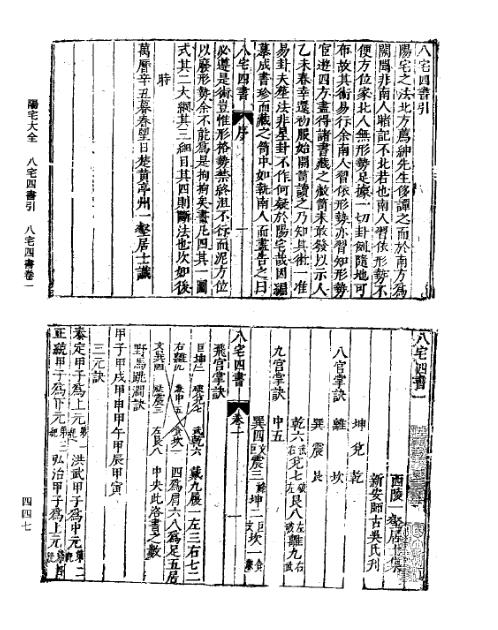 八宅四書引
陽宅之法北方薦紳先生侈譚之而於南方爲
關閩非南人聦記不北若也南人習依形勢不
便方位家北人無形勢足據一切卦例隨地可
布故其術易行余南人習依形勢亦習知形勢
官遊四方盡得諸書藏之敝篋未敢發以示人
乙未春辛還初服始開篋讀之乃知其術一准
易卦夫塟法非星卦不作何疑於陽宅哉因編
纂成書珍而藏之笥中如執南人而盡告之曰
必遵是術豈惟形格勢禁終沮不行而泥方位
以廢形勢余不能爲是拘拘矣書凡四其一圖
式其二大綱其三細目其四則斷法也次如後
時
萬曆辛丑暮春望日楚黄亭州一壑居士識
八宅四書
序
八宅四書
西陵一壑居士集
新安師古吳氏刊
八宫掌訣
坤兌乾
離坎
巽震艮
九宫掌訣
乾六兌七艮八離九
中五
巽四震三坤二坎一
八宅四書
卷一
飛宫掌訣
戴九履一左三右七二
四爲肩六八爲足五居
中央此洛書之數
野馬跳澗訣
甲子甲戌甲申甲午甲辰甲寅
三元訣
泰定甲子爲上元 洪武甲子爲中元
正統甲子爲下元 弘治甲子爲上元
陽宅大全 八宅四書引 八宅四書卷一
四四七